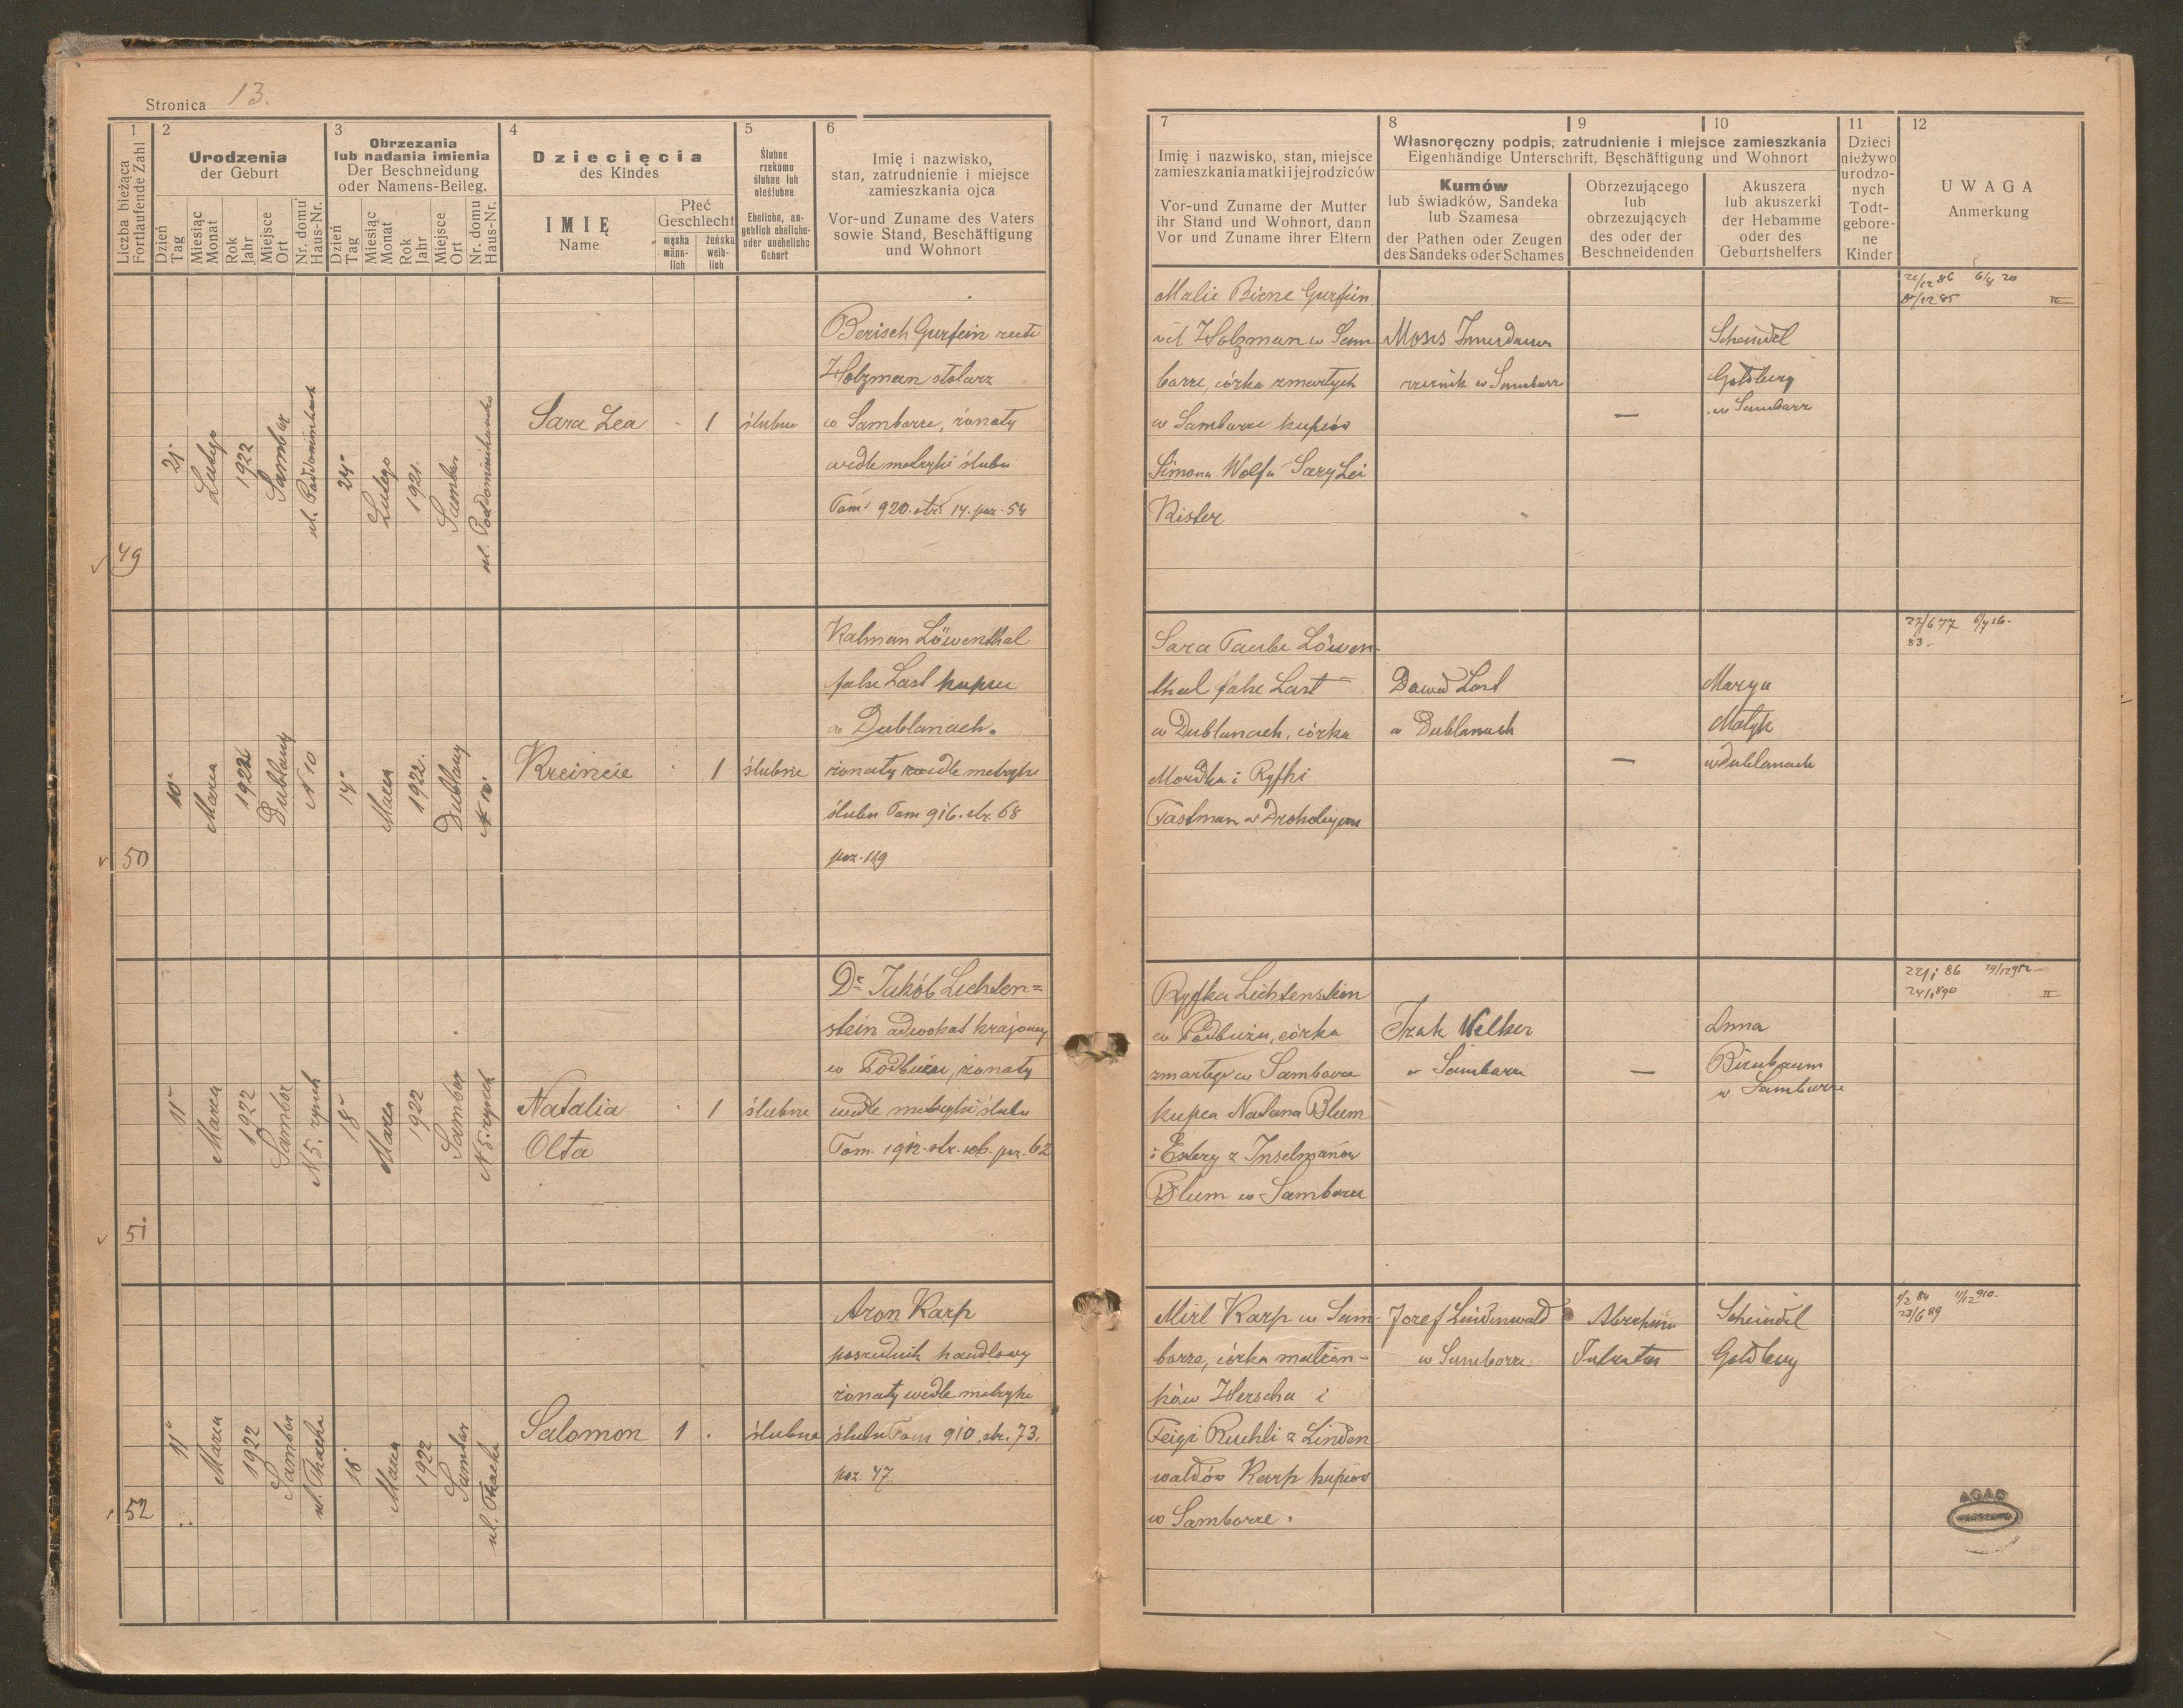 Stronica 13.
1
Liczba bieżąca
Fortlaufende Zahl
2
Urodzenia
der Geburt
Dzień
Tag
Miesiąc
Monat
Rok
Jahr
Miejsce
Ort
Nr. domu
Haus-Nr.
3
Obrzezania
lub nadania imienia
Der Beschneidung
oder Namens-Beileg.
Dzień
Tag
Miesiąc
Monat
Rok
Jahr
Miejsce
Ort
Nr. domu
Haus-Nr.
4
Dziecięcia
des Kindes
IMIĘ
Name
Płeć
Geschlecht
męska
männ-
lich
żeńska
weib-
lich
5
Ślubne
rzekomo
ślubne lub
nieślubne
Eheliche, an-
geblich eheliche-
oder uneheliche
Geburt
6
Imię i nazwisko,
stan, zatrudnienie i miejsce
zamieszkania ojca
Vor-und Zuname des Vaters
sowie Stand, Beschäftigung
und Wohnort
7
Imię i nazwisko, stan, miejsce
zamieszkania matki i jej rodziców
Vor-und Zuname der Mutter
ihr Stand und Wohnort, dann
Vor und Zuname ihrer Eltern
8 9 10
Własnoręczny podpis, zatrudnienie i miejsce zamieszkania
Eigenhändige Unterschrift, Beschäftigung und Wohnort
Kumów
lub świadków, Sandeka
lub Szamesa
der Pathen oder Zeugen
des Sandeks oder Schames
Obrzezującego
lub
obrzezujących
des oder der
Beschneidenden
Akuszera
lub akuszerki
der Hebamme
oder des
Geburtshelfers
11
Dzieci
nieżywo
urodzo-
nych
Todt-
gebore-
ne
Kinder
12
UWAGA
Anmerkung
49
21
Lutego
1922
Sambor
24
Lutego
1921.
Sambor
ul. Poddominikańska
Sara Lea
· 1
ślubne
Berisch Gurfein recte
Holzman stolarz
w Samborze, żonaty
wedle metryki ślubu
Tom 920. str. 14. poz. 54
Malie Birne Gurfein
Holzman w Sam
borze, córka zmarłych
w Samborze kupców
Simona Wolfa Sary Lei
Rister
Moses
w Samborze
—
Scheindel
Goldberg
w Samborze
50
10
Marca
1922
Dublany
N 10
14
Marca
1922.
Dublany
N 10
Kreincie
· 1
ślubne
Kalman Löwenthal
false Last kupiec
w Dublanach.
żonaty wedle metryki
ślubu Tom 916. str. 68
poz. 119
Sara Taube Löwen-
thal false Last
w Dublanach, córka
Mordka i Ryfki
Tastman w Drohobyczu
Dawid Last
w Dublanach
—
Marya
Matyk
w Dublanach
51
11
Marca
1922
Sambor
N 5. rynek
18
Marca
1922
Sambor
N 5. rynek
Natalia
Olta
· 1
ślubne
Dr Jakób Lichten=
stein adwokat krajowy
w Podbużu, żonaty
wedle metryki ślubu
Tom. 1912. str. 106. poz. 62
Ryfka Lichtenstein
w Podbużu, córka
zmarłego w Samborze
kupca Natana Blum
i Estery z Inselmanów
Blum w Samborze
Izak Welker
w Samborze
—
Anna
Birnbaum
w Samborze
52
11
Marca
1922
Sambor
18
Marca
1922
Sambor
Salomon
1 ·
ślubne
Aron Karp
pośrednik handlowy
żonaty wedle metryki
ślubu Tom 910. str. 73.
poz. 47
Mirl Karp w Sam-
borze, córka małżon-
ków Herscha i
Feigi Ruchli z Linden
waldów Karp kupców
w Samborze.
Jozef Lindenwald
w Samborze
Abraham
Scheindel
Goldberg
AGAD
WARSZAWA